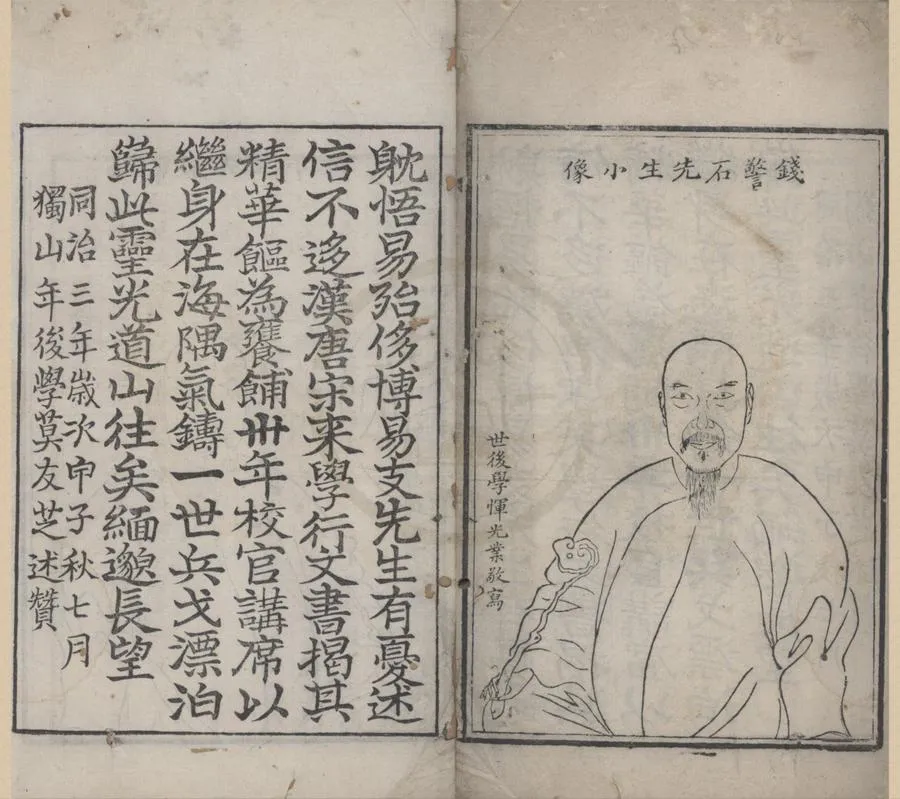 錢警石先生小像
世後學惲光業敬寫
躭悟易殆侈博易支先生有憂述
信不迻漢唐宋来學行文書揭其
精華饇為饔餔卅年校官講席以
繼身在海隅氣鑄一世兵戈漂泊
歸此靈光道山往矣緬邈長望
同治三年歲次甲子秋七月
獨山年後學莫友芝述贊